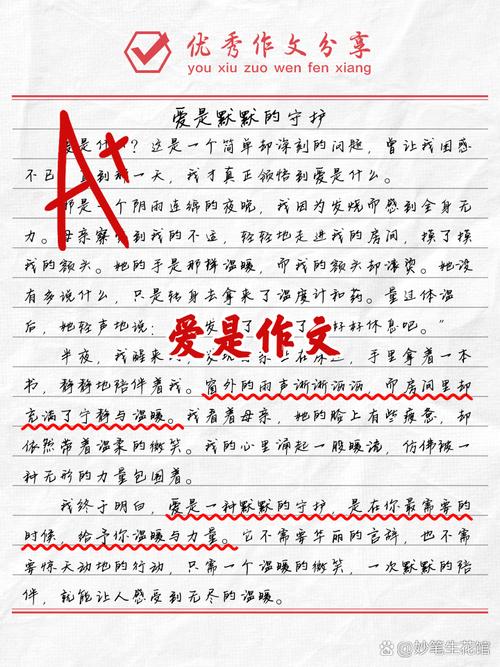 优秀作文分享
you xiu zuo wen fen xiang
A+
爱是默默的守护
是什 ？这是一个简单却深刻的问题，曾让我困惑
不已 到那一天，我才真正领悟到爱是什么。
那是 个阴雨连绵的夜晚，我因为发烧而感到全身无
力。母亲察 到我的不适，轻轻地走进我的房间，摸了摸
我的额头。她的手是那样温暖，而我的额头却滚烫。她没
有多说什么，只是转身去拿来了温度计和药。量过体温
后，她轻声地说： 发 了 了 好好休息吧。”
爱是作文
半夜，我醒来 ，发现 亲 上在 边，手里拿着一本
书，静静地陪伴着我。窗外的雨声淅淅洒洒，而房间里却
充满了宁静与温暖。我看着母亲，她的脸上有些疲惫，却
依然带着温柔的微笑。我的心里涌起一股暖流，仿佛被一
种无形的力量包围着。
我终于明白，爱是一种默默的守护，是在你最需要的
时候，给予你温暖与力量。它不需要华丽的言辞，也不需
要惊天动地的行动，只需一个温暖的微笑，一次默默的陪
伴，就能让人感受到无尽的温暖。
@妙笔生花馆